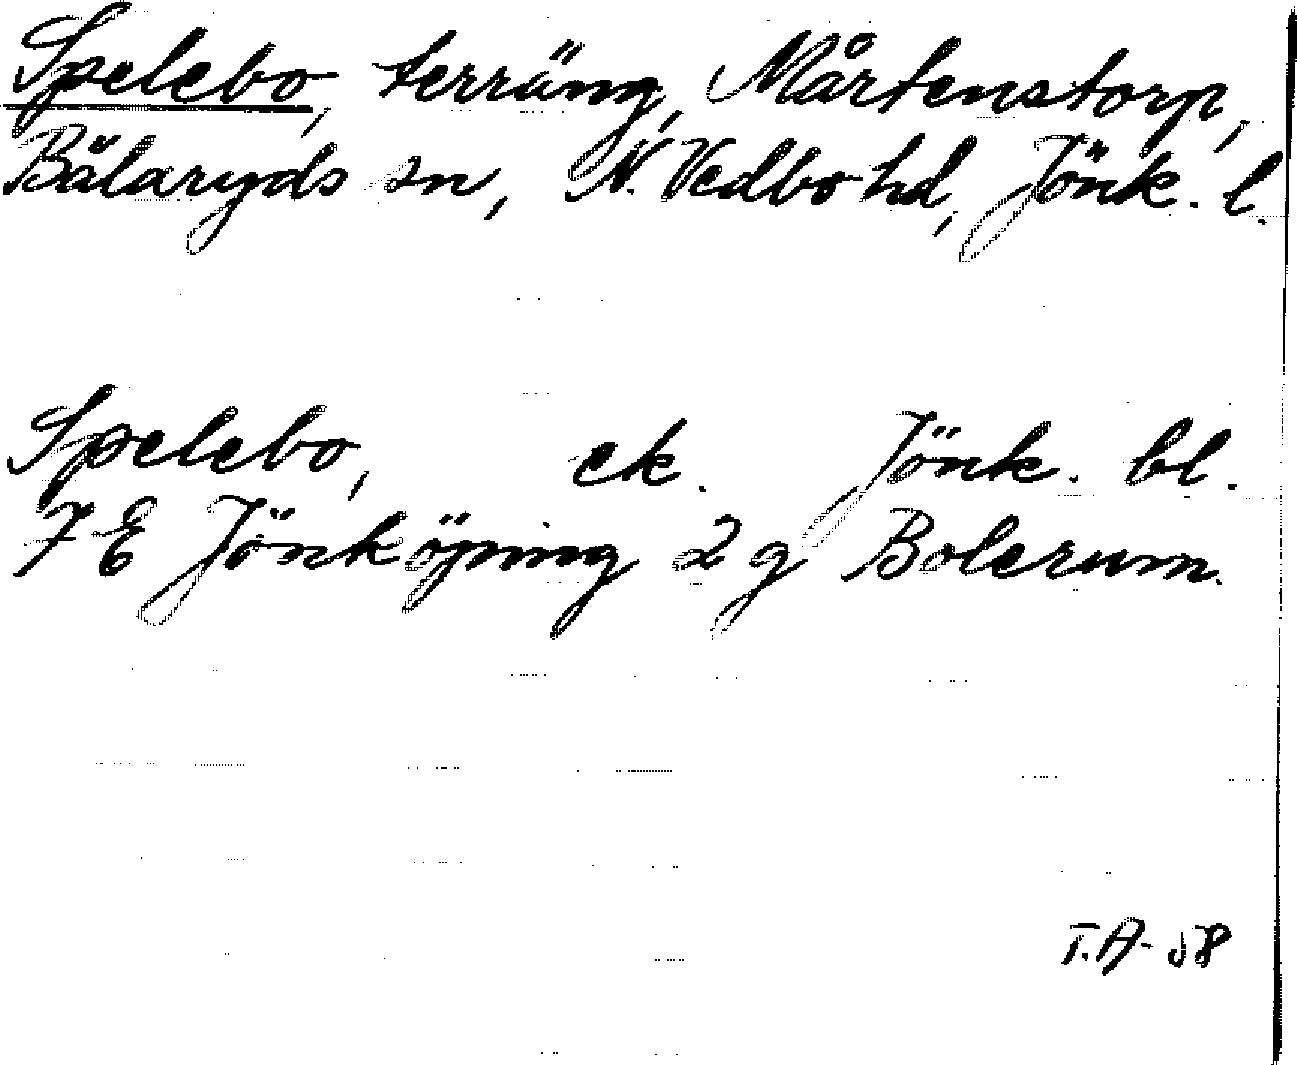 Spelebo, terräng, Mårtenstorp,
Bälaryds sn, N. Vedbo hd, Jönk. l.
Spelebo, ek. Jönk. bl.
7 E Jönköping 2 g Bolerum.
T.A- 58